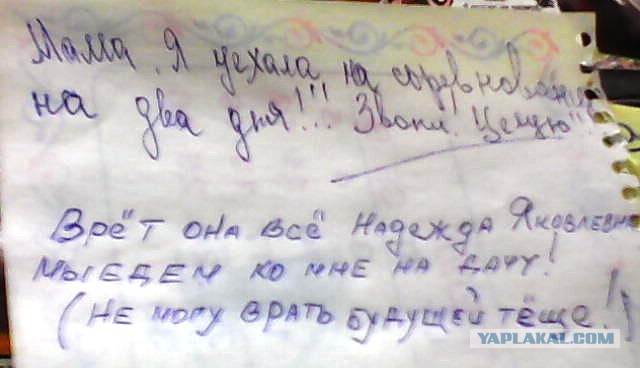 Мама, Я уехала на соревнования
на два дня!!! Звони! Целую!!
Врёт она всё Надежда Яковлевна
мы едем ко мне на дачу!
(не могу врать будущей тёще!)
YAPLAKAL.COM